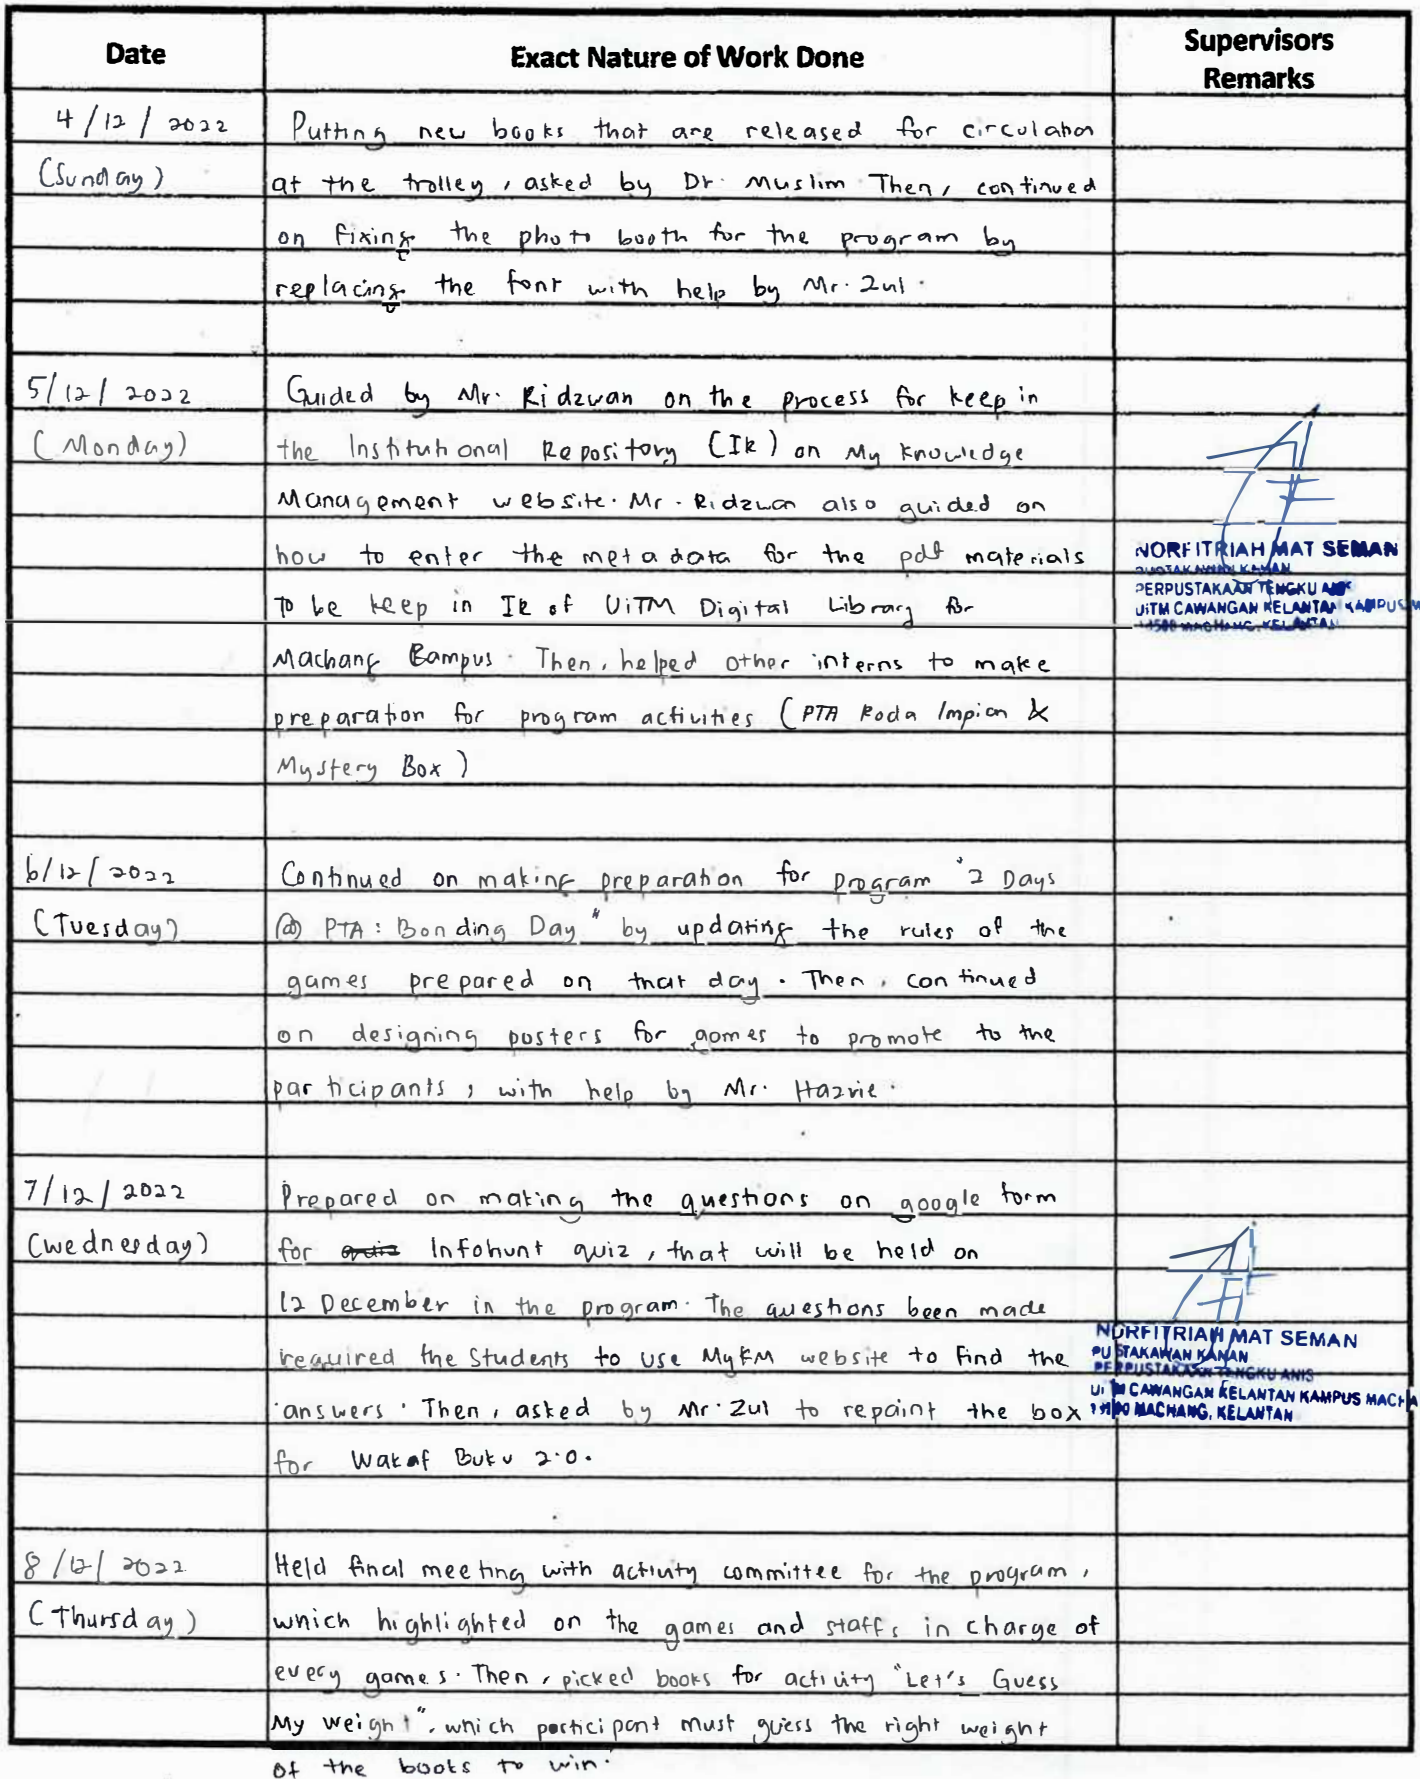 Date
Exact Nature of Work Done
Supervisors
Remarks
4/12/2022
(Sunday)
Putting new books that are released for circulation
at the trolley, asked by Dr. Muslim. Then, continued
on fixing the photo booth for the program by
replacing the font with help by Mr. Zul.
5/12/2022
(Monday)
Guided by Mr. Ridzwan on the process for keep in
the Institutional Repository (IR) on My Knowledge
Management website. Mr. Ridzwan also guided on
how to enter the metadata for the pdf materials
to be keep in IR of UiTM Digital Library for
Machang Campus. Then, helped other interns to make
preparation for program activities (PTA Roda Impian &
Mystery Box)
NORFITRIAH MAT SEMAN
PUSTAKAWAN KANAN
PERPUSTAKAAN TENGKU ANIS
UiTM CAWANGAN KELANTAN KAMPUS M
18500 MACHANG, KELANTAN
6/12/2022
(Tuesday)
Continued on making preparation for program "2 Days
@ PTA: Bonding Day" by updating the rules of the
games prepared on that day. Then, continued
on designing posters for games to promote to the
participants, with help by Mr. Hazrie.
7/12/2022
(Wednesday)
Prepared on making the questions on google form
for quiz Infohunt quiz, that will be held on
12 December in the program. The questions been made
required the students to use MyKM website to find the
answers. Then, asked by Mr. Zul to repaint the box
for Wakaf Buku 2.0.
NORFITRIAH MAT SEMAN
PUSTAKAWAN KANAN
PERPUSTAKAAN TENGKU ANIS
UiTM CAWANGAN KELANTAN KAMPUS MACHA
18500 MACHANG, KELANTAN
8/12/2022
(Thursday)
Held final meeting with activity committee for the program,
which highlighted on the games and staffs in charge of
every games. Then, picked books for activity "Let's Guess
My Weight", which participant must guess the right weight
of the books to win.